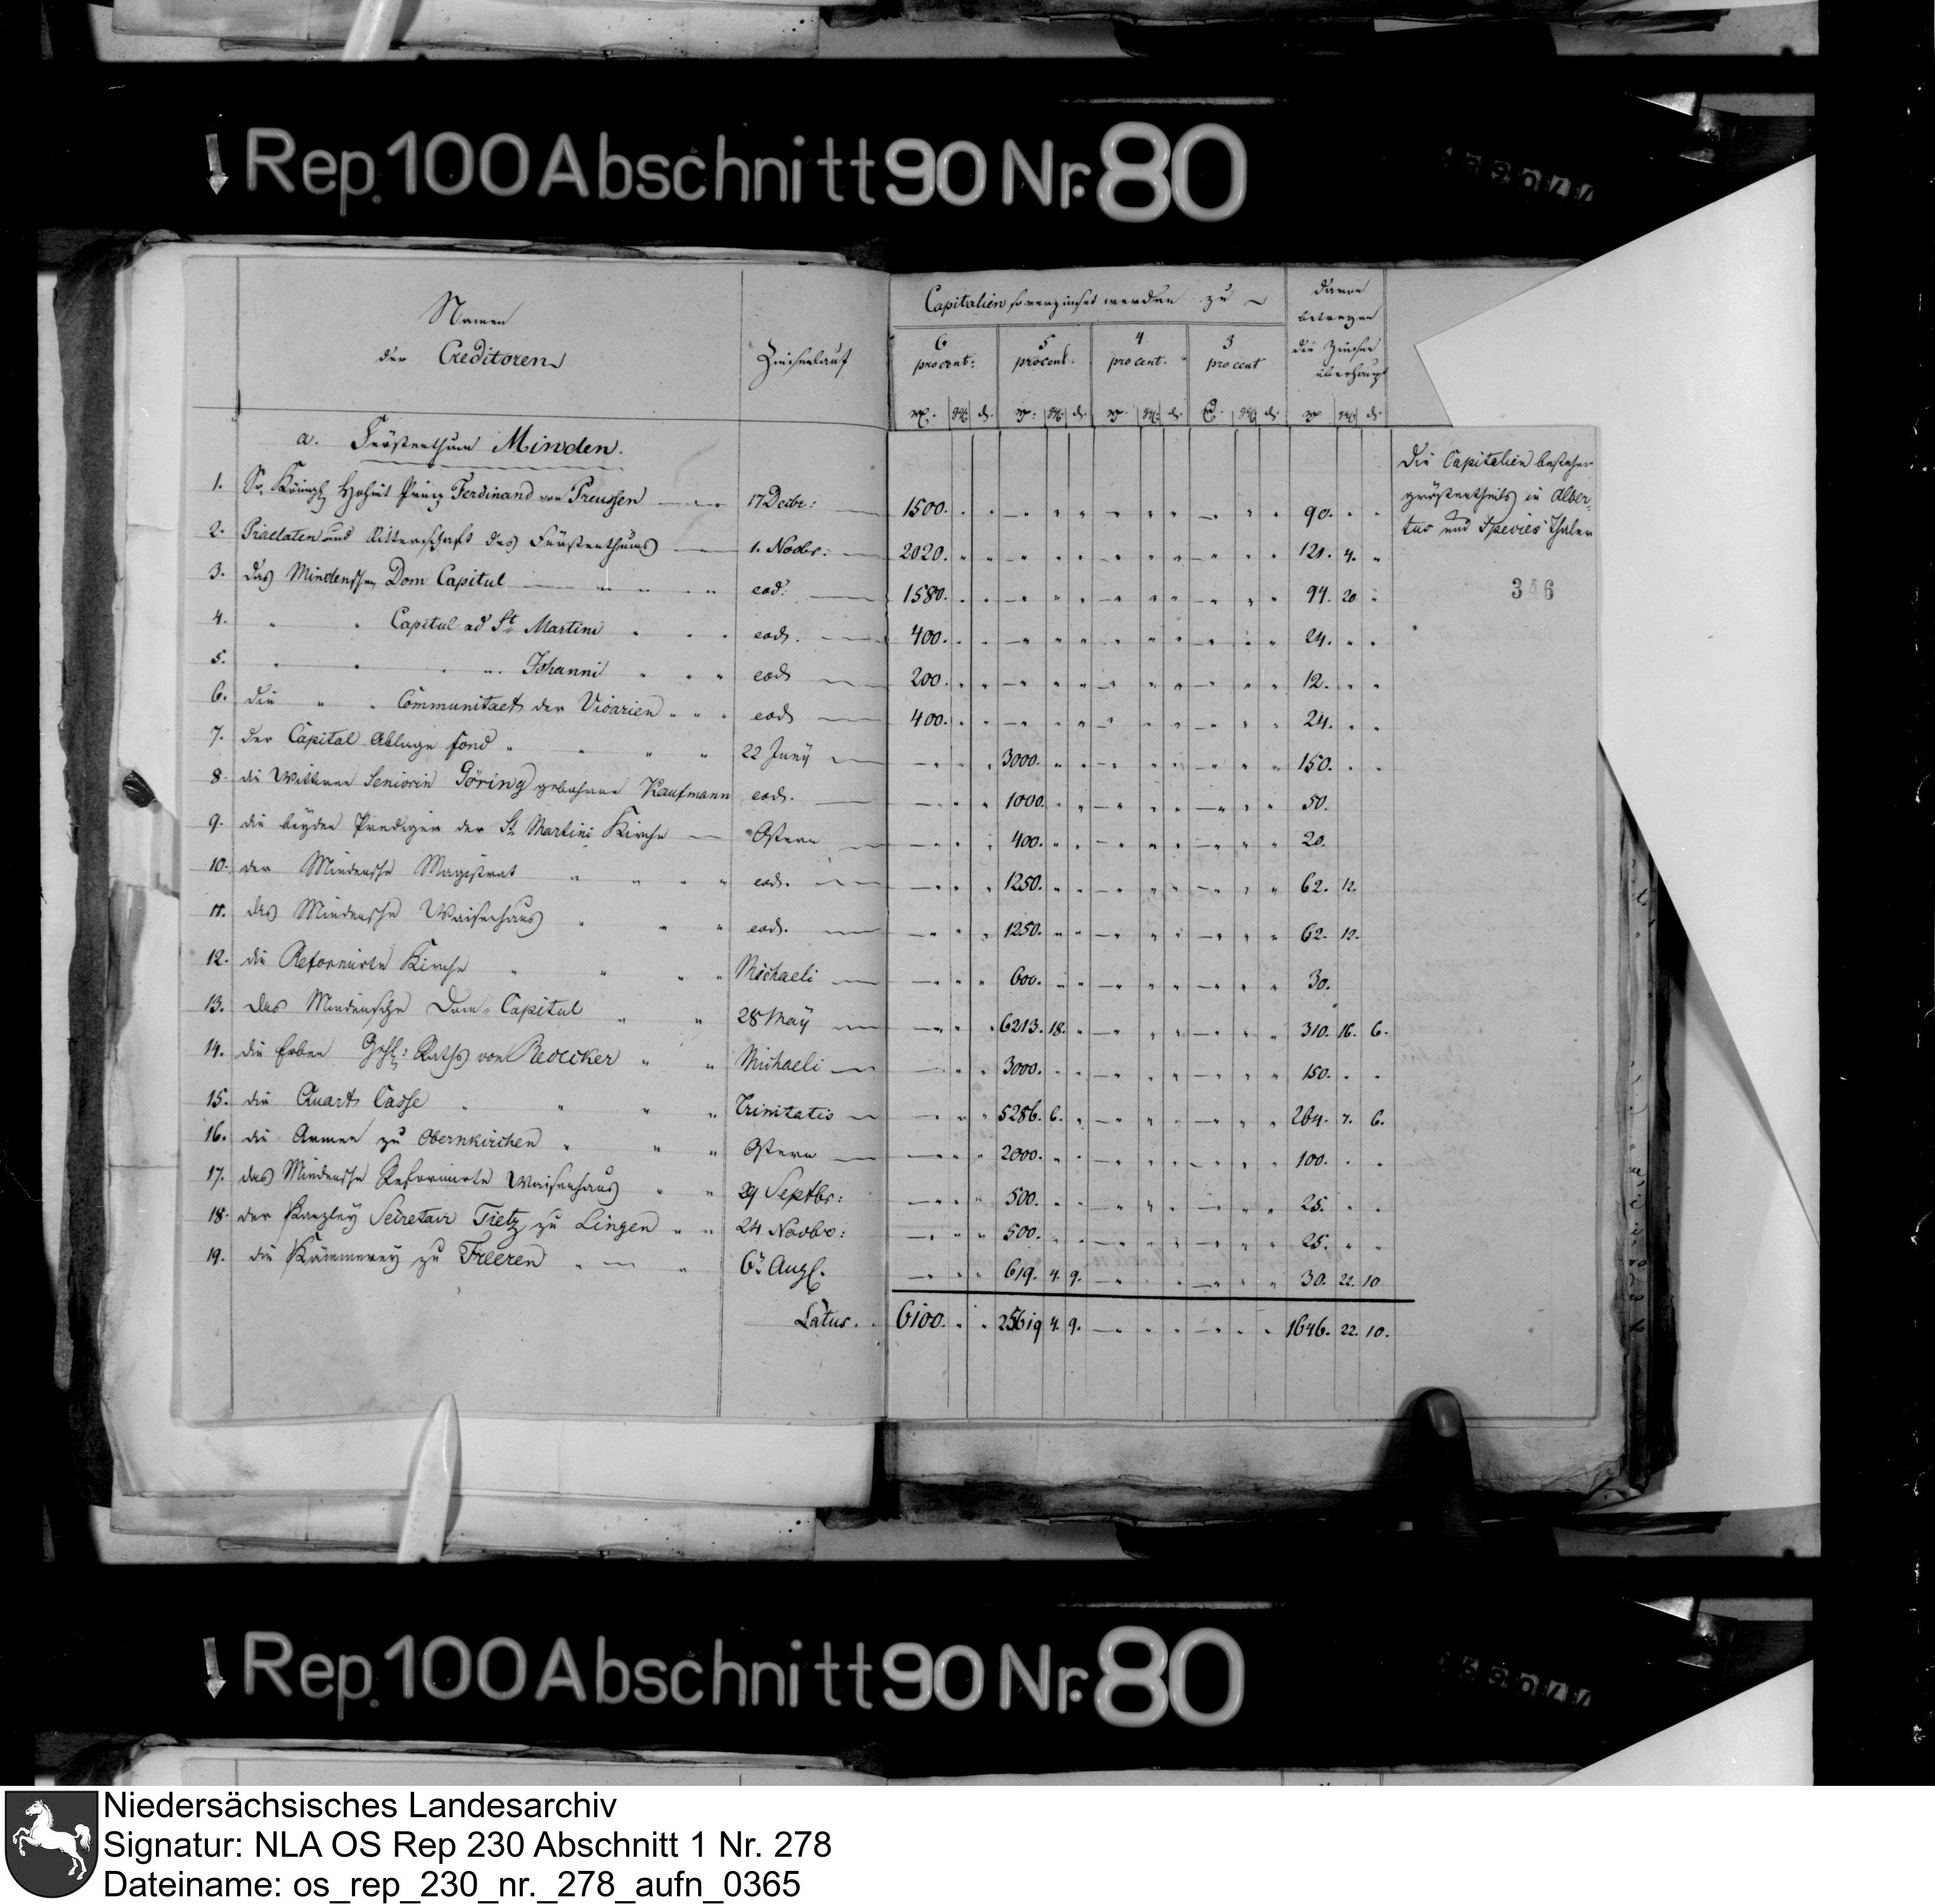 Rep. 100 Abschnitt 90 Nr. 80
Namen
der Creditoren
Zinselauf
Capitalien so verzinset werden zu
6 procent: 5 procent. 4 procent. 3 procent
davon
betragen
die Zinsen
überhaupt
a. Fürstenthum Minden.
die Capitalien bestehen
größtentheils in Alber-
tus und Species Thaler
346
1. Sr. Königl. Hoheit Prinz Ferdinand von Preussen 17 Decbr: 1500. 90.
2. Praelaten und Ritterschaft des Fürstenthums 1. Novbr: 2020. 121. 4.
3. das Mindensche Dom Capitul eod: 1580. 94. 20
4. " " Capitul ad St. Martini eod. 400. 24.
5. " " " " Johanni eod. 200. 12.
6. die " " Communitaet der Vicarien eod. 400. 24.
7. der Capital Ablage fond 22 Juny 3000. 150.
8. die Wittwe Seniorin Göring gebohrne Kaufmann eod. 1000. 50.
9. die beyden Prediger der St. Martini Kirche Ostern 400. 20.
10. der Mindensche Magistrat eod. 1250. 62. 12.
11. das Mindensche Waisenhaus eod. 1250. 62. 12.
12. die Reformirte Kirche Michaeli 600. 30.
13. das Mindensche Dom Capitul 28 May 6213. 18. 310. 16. 6.
14. die Erben Raths von Redecker Michaeli 3000. 150.
15. die Quart Casse Trinitatis 5286. 6. 264. 7. 6.
16. die Armen zu Obernkirchen Ostern 2000. 100.
17. das Mindensche Reformirte Waisenhaus 29 Septbr: 500. 25.
18. der Kanzley Secretair Tietz zu Lingen 24 Novbr: 500. 25.
19. die Kämmerey zu Freeren 6. Aug. 619. 4. 9. 30. 22. 10
Latus. 6100. 25619 4. 9. 1646. 22. 10.
Rep. 100 Abschnitt 90 Nr. 80
Niedersächsisches Landesarchiv
Signatur: NLA OS Rep 230 Abschnitt 1 Nr. 278
Dateiname: os_rep_230_nr._278_aufn_0365